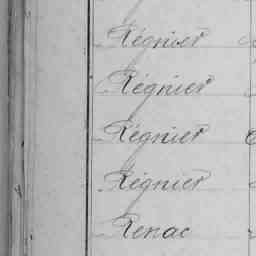 Régnier
Régnier
Régnier
Régnier
Renac